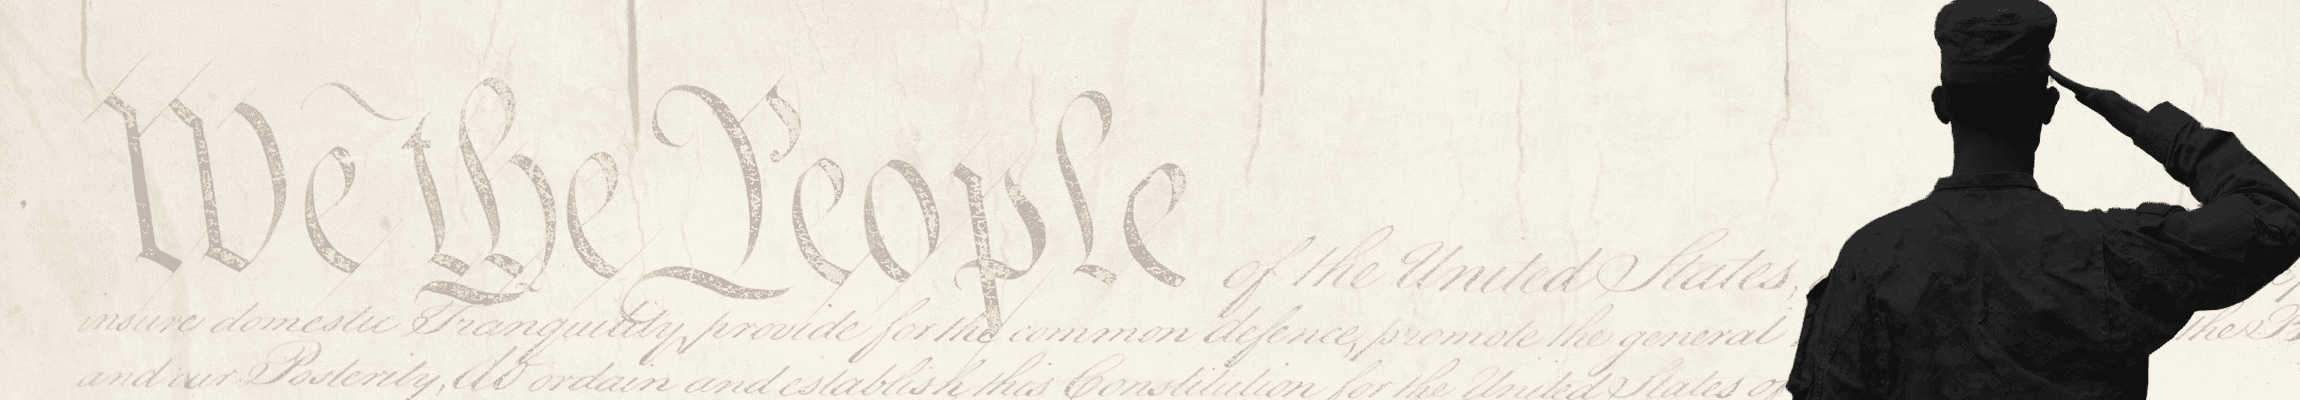 We the People of the United States,
insure domestic Tranquility, provide for the common defence, promote the general the B
and our Posterity, do ordain and establish this Constitution for the United States of